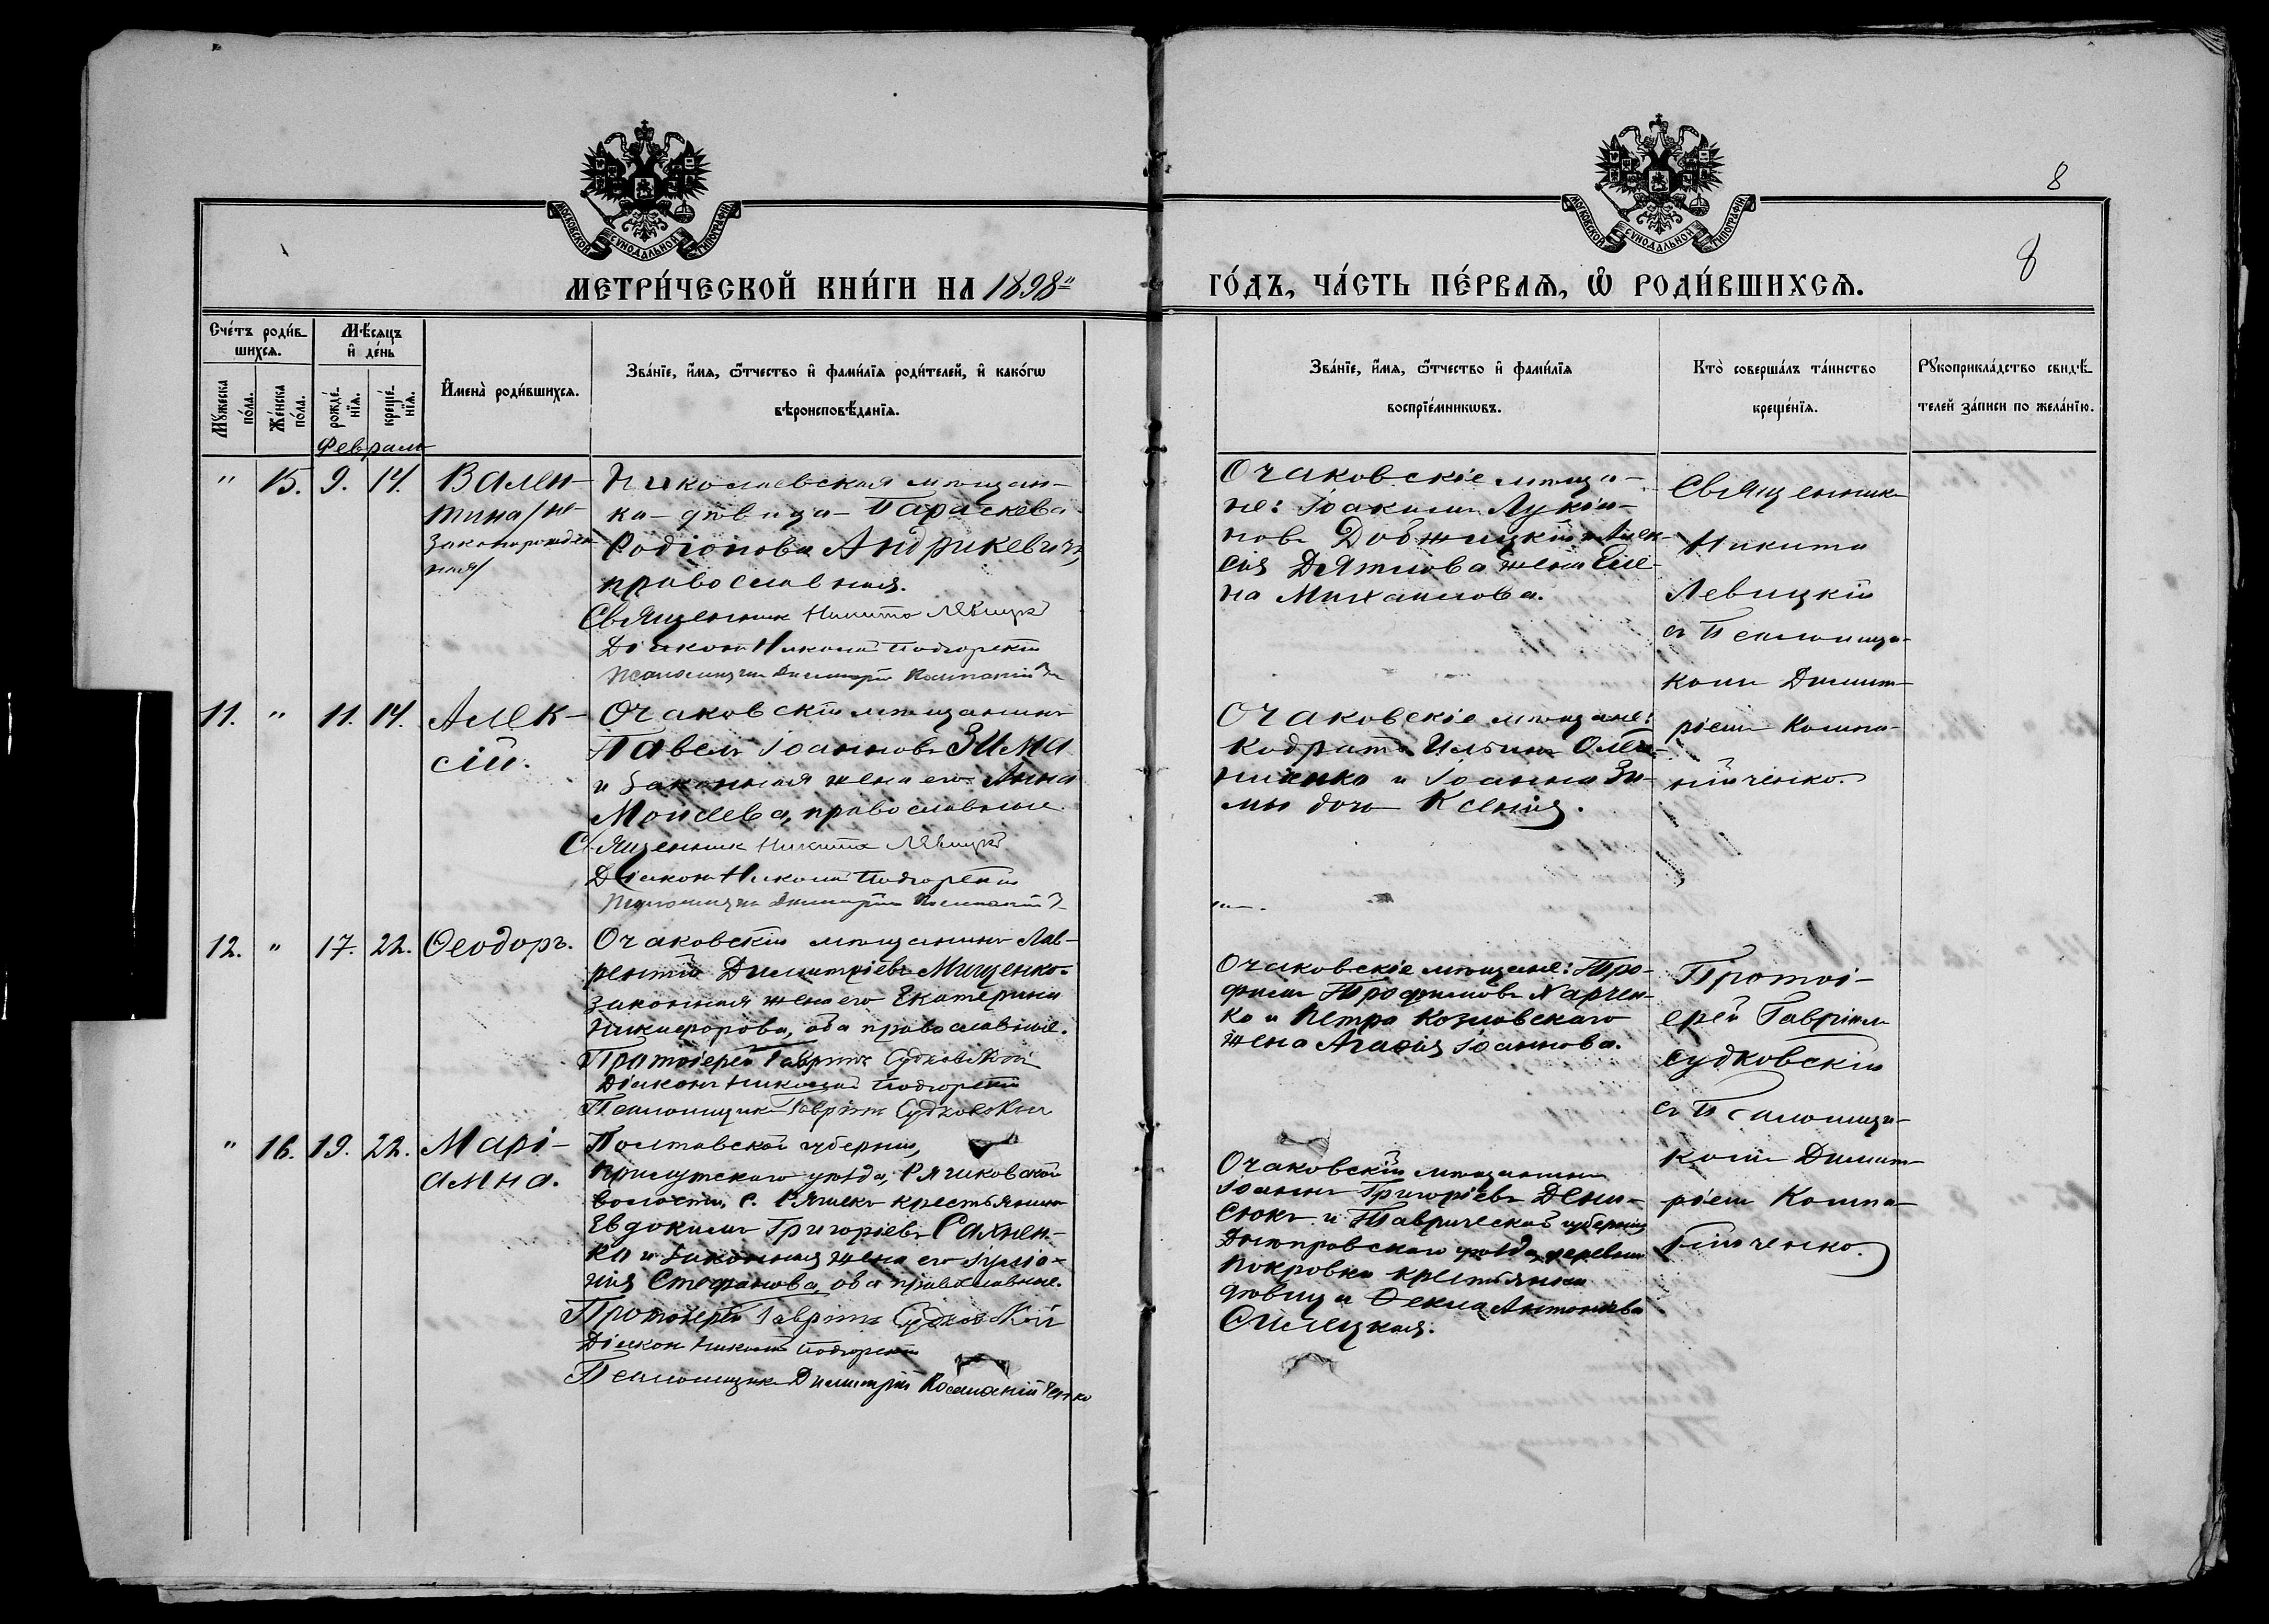 8
8
МОСКОВСКОЙ СѴНОДАЛЬНОЙ ТИПОГРАФІИ
МОСКОВСКОЙ СѴНОДАЛЬНОЙ ТИПОГРАФІИ
МЕТРИ́ЧЕСКОЙ КНИ́ГИ НА 1898"
ГО́ДЪ, ЧА́СТЬ ПЕ́РВАѦ, Ѡ҆ РОДИ́ВШИХСѦ.
Сче́тъ роди́в-
шихсѧ.
Мѣ́сѧцъ
и҆ де́нь
Мꙋ́жеска
по́ла.
Же́нска
по́ла.
рожде́-
нїѧ.
креще́-
нїѧ.
И҆мена̀ роди́вшихсѧ.
Зва́нїе, и҆́мѧ, ѻ҆́тчество и҆ фами́лїѧ роди́телей, и҆ како́гѡ
вѣроисповѣ́данїѧ.
Зва́нїе, и҆́мѧ, ѻ҆́тчество и҆ фами́лїѧ
воспрїе́мникѡвъ.
Кто̀ соверша́лъ та́инство
креще́нїѧ.
Рꙋкоприкла́дство свидѣ́-
телей за́писи по жела́нїю.
Февраль
" 15. 9. 14.
Вален-
тина /не-
законорожден-
ная/
Николаевская мѣщан-
ка - дѣвица - Параскева
Родіонова Андрикевичъ,
православная.
Священник Никита Левицкій
Діаконъ Николай Подгорскій
Псаломщикъ Димитрій
Очаковскіе мѣща-
не: Іоакимъ Лукіа-
новъ Добжицкій и Алек-
сія Дятлова жена Еле-
на Михаилова.
Священникъ
Никита
Левицкій
съ Псаломщи-
комъ Димит-
ріемъ Компа-
нійченко.
11. " 11. 14.
Алек-
сій.
Очаковскій мѣщанинъ
Павелъ Іоанновъ Зима
и законная жена его Анна
Моисеева, православные
Священник Никита Левицкій
Діаконъ Николай Подгорскій
Псаломщикъ Димитрій
Очаковскіе мѣщане:
Кодратъ Ильинъ Олей-
ниченко и Іоанна Зи-
мы дочь Ксенія.
12. " 17. 22.
Ѳеодоръ.
Очаковскій мѣщанинъ Лав-
рентій Димитріевъ Мищенко.
законная жена его Екатерина
Никифорова, оба православные.
Протоіерей Гавріилъ Судковскій
Діаконъ Николай Подгорскій
Псаломщикъ Гавріилъ Судковскій
Очаковскіе мѣщане: Тро-
фимъ Трофимовъ Харчен-
ко и Петра Козловскаго
жена Агаѳія Іоаннова.
Протоі-
ерей Гавріилъ
Судковскій
съ Псаломщи-
комъ Димит-
ріемъ Компа-
нійченко.
" 16. 19. 22.
Марі-
амна.
Полтавской губерніи,
Прилуцкаго уѣзда, Ряшковской
волости, с. Ряшекъ крестьянинъ
Евдокимъ Григоріевъ Сахнен-
ко и законная жена его Іуліа-
нія Стефанова, оба православные.
Протоіерей Гавріилъ Судковскій
Діаконъ Николай Подгорскій
Псаломщикъ Димитрій Компанійченко
Очаковскій мѣщанинъ
Іоаннъ Григоріевъ Дени-
сюкъ и Таврической губерніи
Днѣпровскаго уѣзда, деревни
Покровки крестьянка
дѣвица Ѳекла Антоніева
Силецкая.